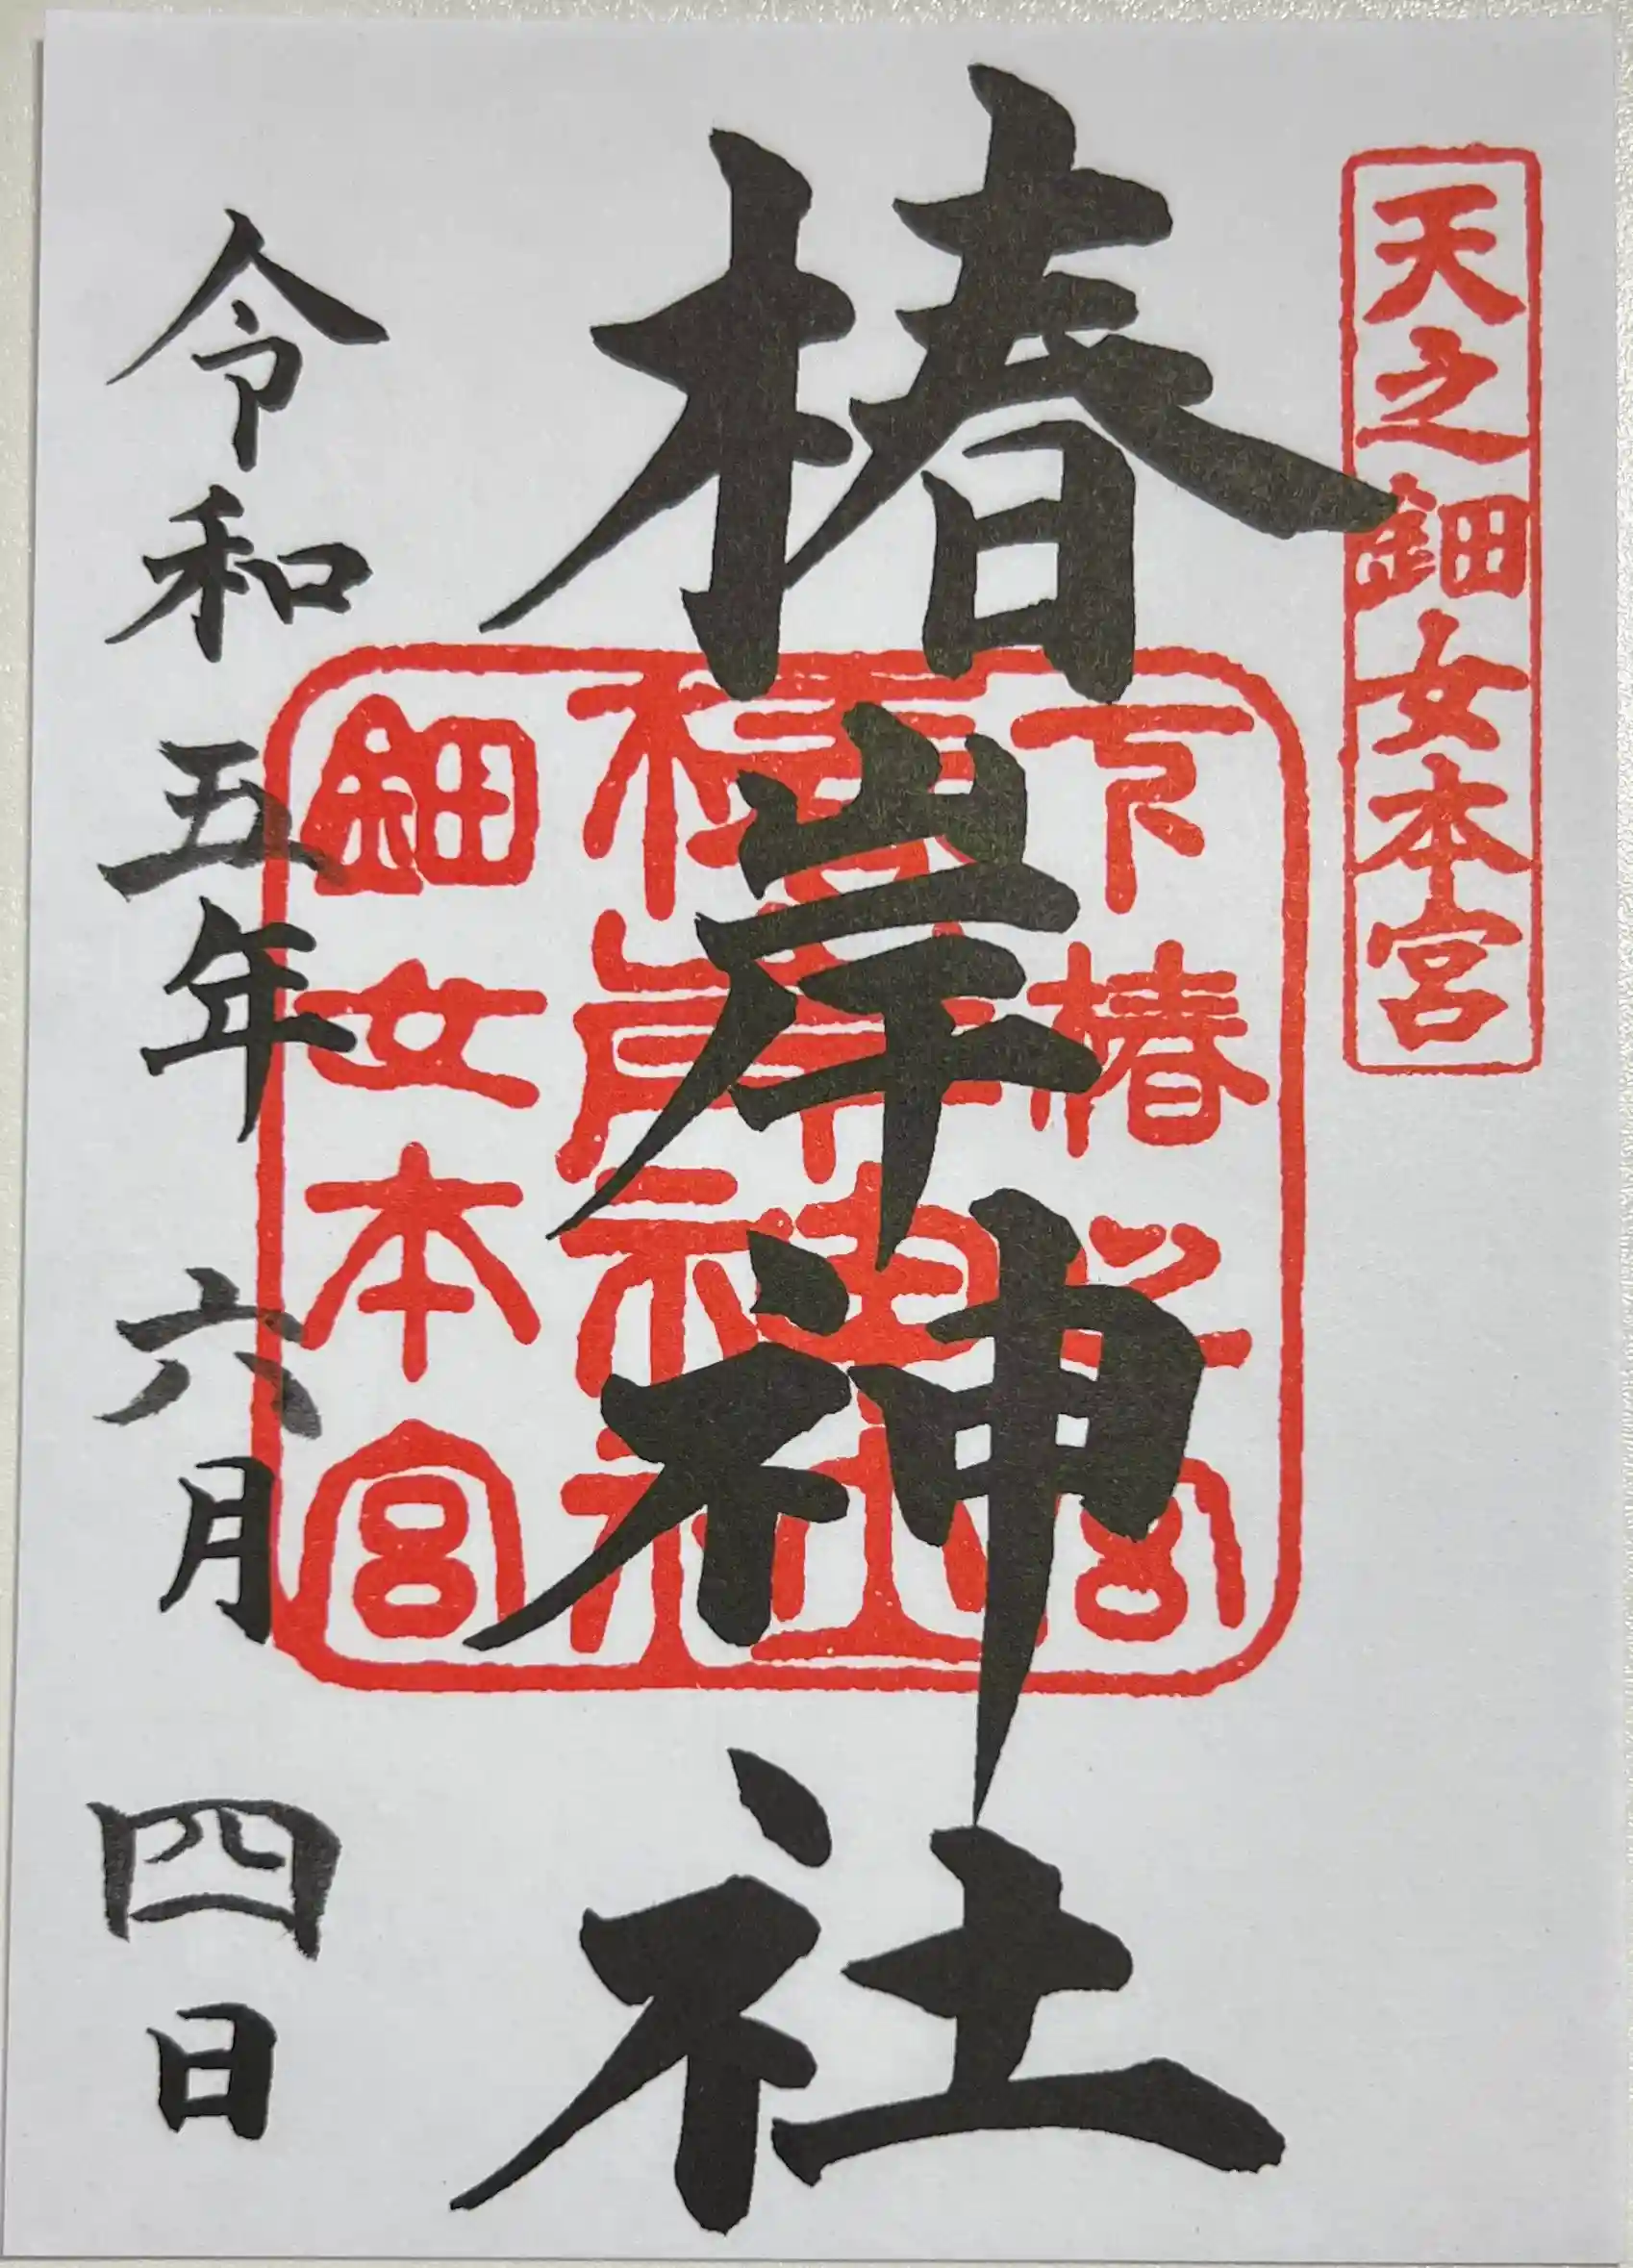 天之鈿女本宮
椿岸神社
下椿
椿岸神社
鈿女本宮
令和五年六月四日